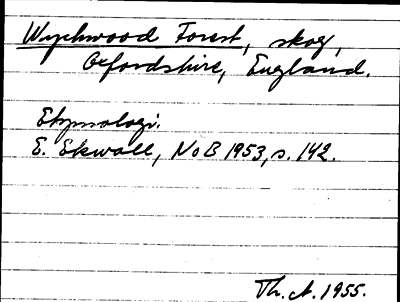 Wychwood Forest, skog,
Oxfordshire, England.
Etymologi.
E. Ekwall, NoB 1953, s. 142.
Th. A. 1955.